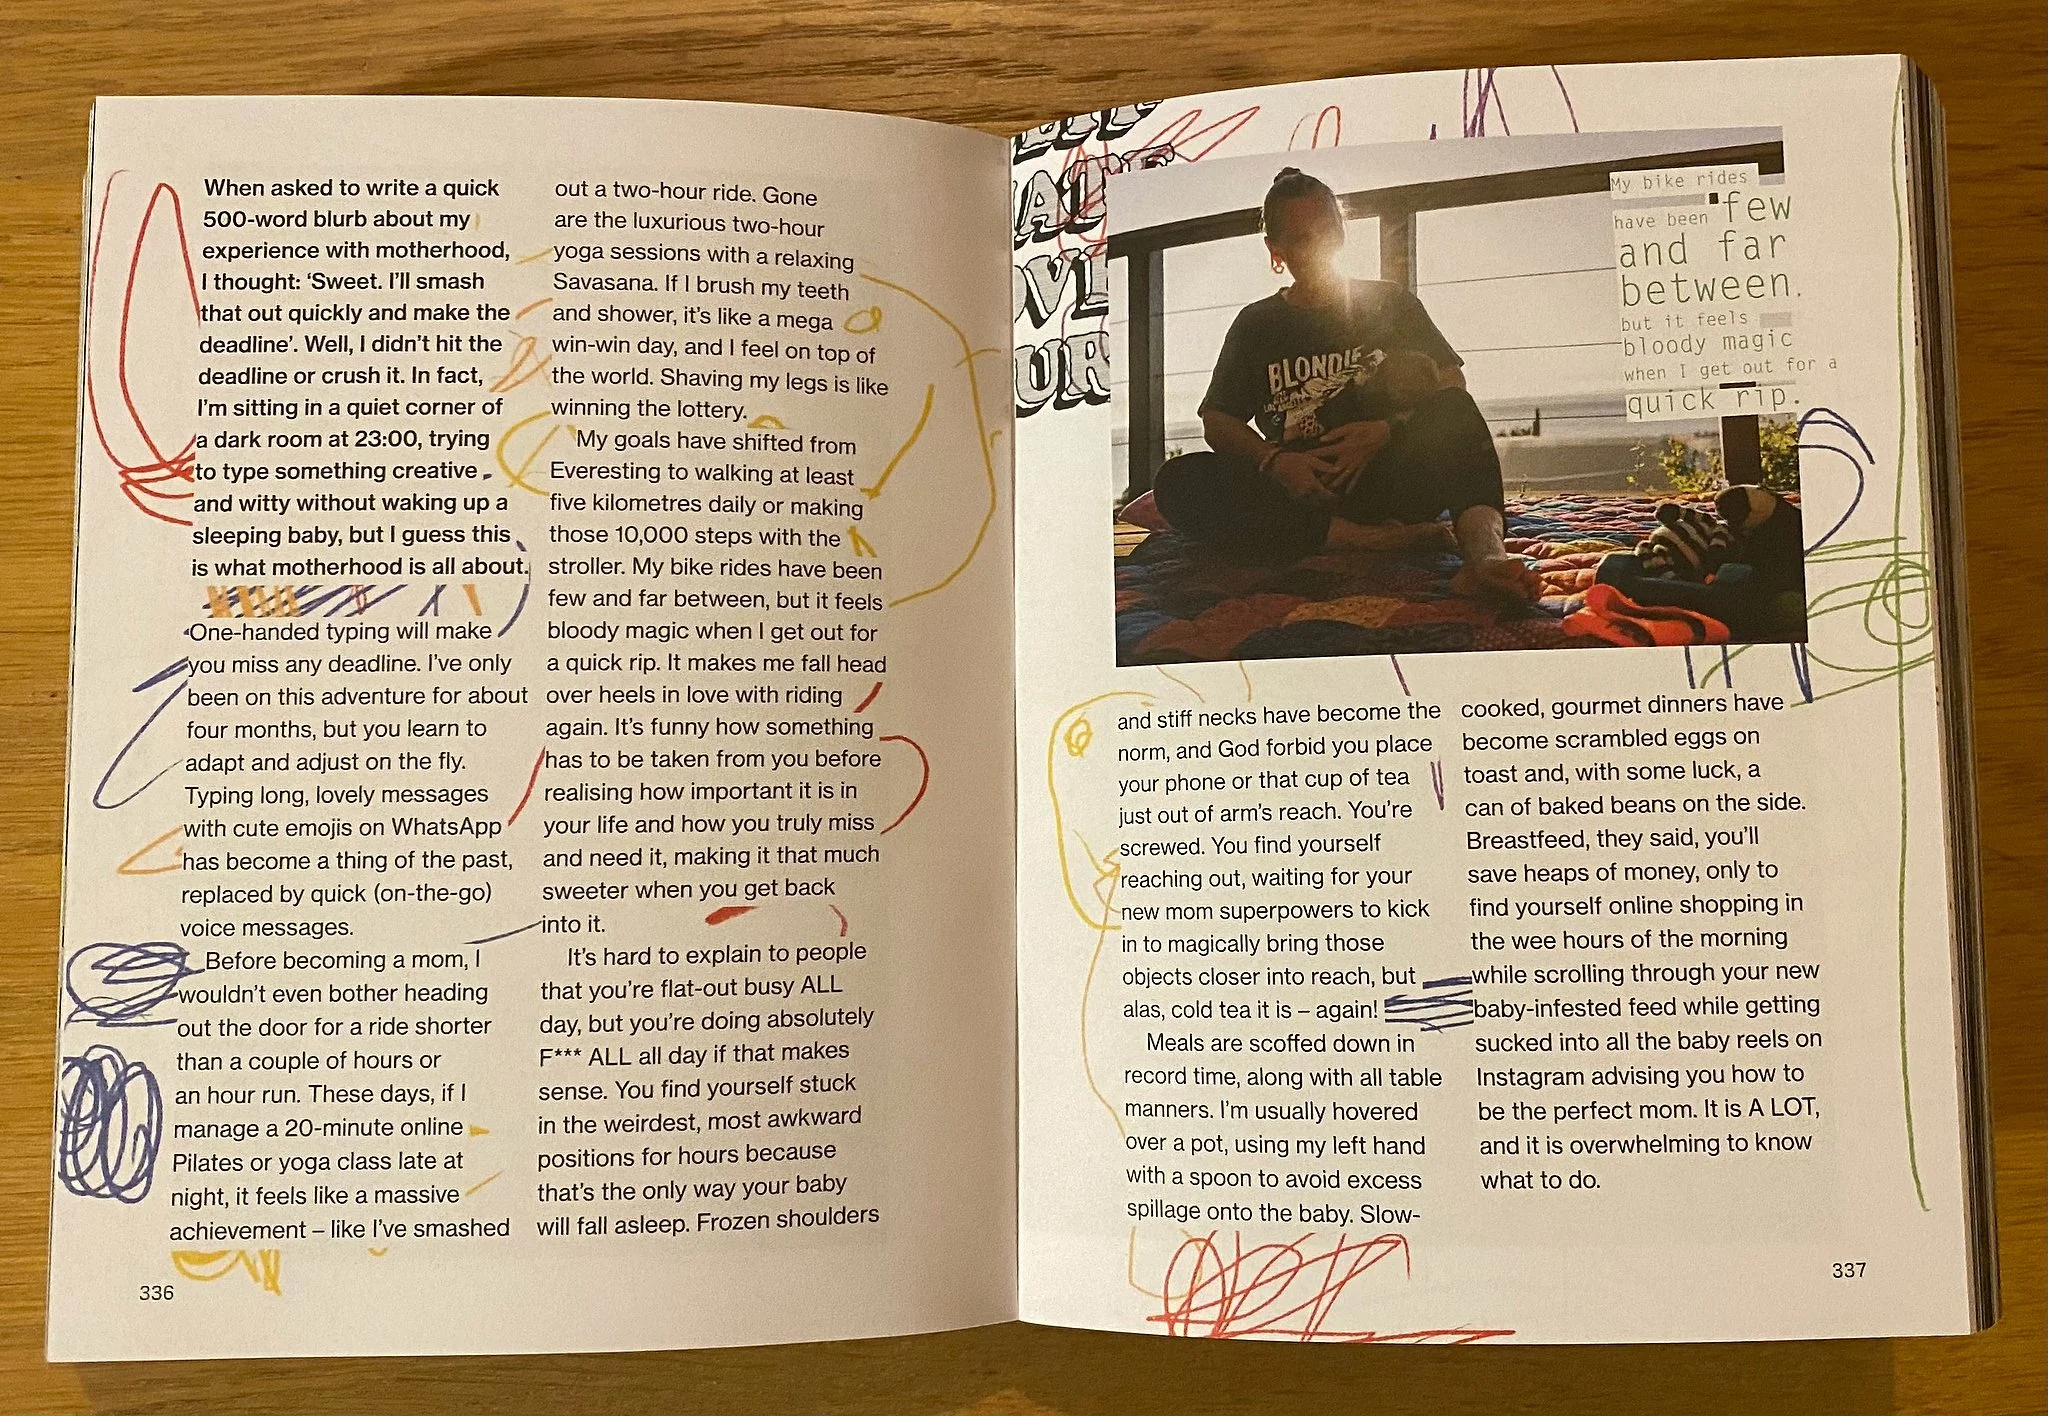 When asked to write a quick
500-word blurb about my
experience with motherhood,
I thought: ‘Sweet. I’ll smash
that out quickly and make the
deadline’. Well, I didn’t hit the
deadline or crush it. In fact,
I’m sitting in a quiet corner of
a dark room at 23:00, trying
to type something creative
and witty without waking up a
sleeping baby, but I guess this
is what motherhood is all about.
One-handed typing will make
you miss any deadline. I’ve only
been on this adventure for about
four months, but you learn to
adapt and adjust on the fly.
Typing long, lovely messages
with cute emojis on WhatsApp
has become a thing of the past,
replaced by quick (on-the-go)
voice messages.
Before becoming a mom, I
wouldn’t even bother heading
out the door for a ride shorter
than a couple of hours or
an hour run. These days, if I
manage a 20-minute online
Pilates or yoga class late at
night, it feels like a massive
achievement – like I’ve smashed
out a two-hour ride. Gone
are the luxurious two-hour
yoga sessions with a relaxing
Savasana. If I brush my teeth
and shower, it’s like a mega
win-win day, and I feel on top of
the world. Shaving my legs is like
winning the lottery.
My goals have shifted from
Everesting to walking at least
five kilometres daily or making
those 10,000 steps with the
stroller. My bike rides have been
few and far between, but it feels
bloody magic when I get out for
a quick rip. It makes me fall head
over heels in love with riding
again. It’s funny how something
has to be taken from you before
realising how important it is in
your life and how you truly miss
and need it, making it that much
sweeter when you get back
into it.
It’s hard to explain to people
that you’re flat-out busy ALL
day, but you’re doing absolutely
F*** ALL all day if that makes
sense. You find yourself stuck
in the weirdest, most awkward
positions for hours because
that’s the only way your baby
will fall asleep. Frozen shoulders
336
My bike rides
have been few
and far
between.
but it feels
bloody magic
when I get out for a
quick rip.
BLONDIE
and stiff necks have become the
norm, and God forbid you place
your phone or that cup of tea
just out of arm’s reach. You’re
screwed. You find yourself
reaching out, waiting for your
new mom superpowers to kick
in to magically bring those
objects closer into reach, but
alas, cold tea it is – again!
Meals are scoffed down in
record time, along with all table
manners. I’m usually hovered
over a pot, using my left hand
with a spoon to avoid excess
spillage onto the baby. Slow-
cooked, gourmet dinners have
become scrambled eggs on
toast and, with some luck, a
can of baked beans on the side.
Breastfeed, they said, you’ll
save heaps of money, only to
find yourself online shopping in
the wee hours of the morning
while scrolling through your new
baby-infested feed while getting
sucked into all the baby reels on
Instagram advising you how to
be the perfect mom. It is A LOT,
and it is overwhelming to know
what to do.
337